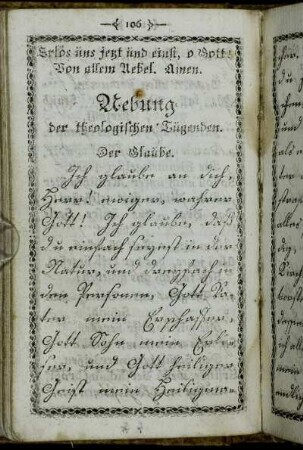 106.
Erlös üns jetzt ünd einst, o Gott!
Von allem Uebel. Amen.
Uebung
der theologischen Tügenden.
Der Glaübe.
Ich glaube an dich,
Herr! ewiger, wahrer
Gott! Ich glaube, daß
du einfach seyest in der
Natur, und dreyfach in
den Personen, Gott Va-
ter mein Erschaffer,
Gott Sohn mein Erlö-
ser, und Gott heiliger
Geist mein Heiligma-